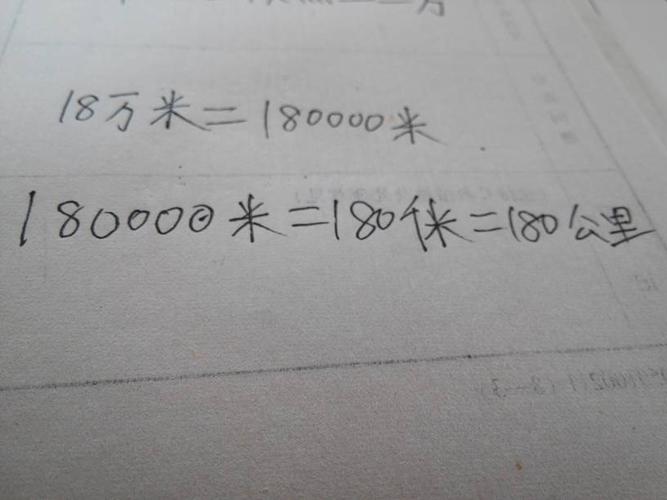 18万米=180000米
180000米=180千米=180公里